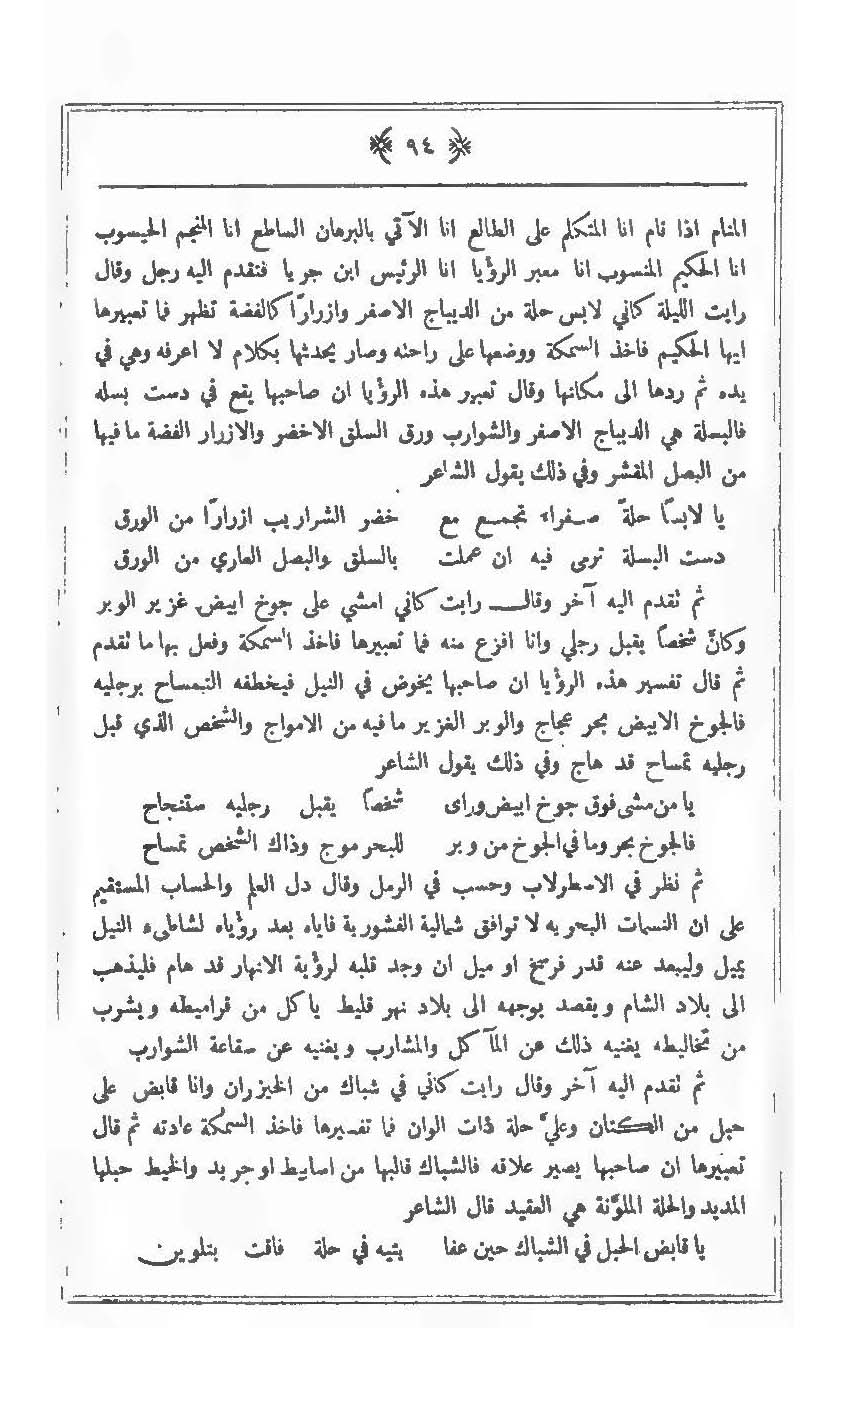 ٩٤
المنام اذا قام انا المتكلم على الطالع انا الآتي بالبرهان الساطع انا المنجم الحيسوب
انا الحكيم المنسوب انا معبر الرؤيا انا الرئيس ابن جريا فتقدم اليه رجل وقال
رايت الليلة كاني لابس حلة من الديباج الاصفر وازرارًا كالفضة تظهر فما تعبيرها
ايها الحكيم فاخذ السمكة ووضعها على راحته وصار يحدثها بكلام لا اعرفه وهي في
يده ثم ردها الى مكانها وقال تعبير هذه الرؤيا ان صاحبها يقع في دست بسله
فالبسلة هي الديباج الاصفر والشوارب ورق السلق الاخضر والازرار الفضة ما فيها
من البصل المقشر وفي ذلك يقول الشاعر
يا لابسًا حلةً صفراء تجمع مع خضر الشراريب ازرارًا من الورق
دست البسلة ترمى فيه ان عملت بالسلق والبصل العاري من الورق
ثم تقدم اليه آخر وقال رايت كاني امشي على جوخ ابيض غزير الوبر
وكانَّ شخصاً يقبل رجلي وانا افزع منه فما تعبيرها فاخذ السمكة وفعل بها ما تقدم
ثم قال تفسير هذه الرؤيا ان صاحبها يخوض في النيل فيخطفه التمساح برجليه
فالجوخ الابيض بحر عجاج والوبر الغزير ما فيه من الامواج والشخص الذي قبل
رجليه تمساح قد هاج وفي ذلك يقول الشاعر
يا من مشى فوق جوخ ابيض وراى شخصاً يقبل رجليه ستنجاح
فالجوخ بحر وما في الجوخ من وبر للبحر موج وذاك الشخص تمساح
ثم نظر في الاصطرلاب وحسب في الرمل وقال دل العلم والحساب المستقيم
على ان النسمات البحريه لا توافق شمالية القشورية فاياه بعد رؤياه لشاطىء النيل
يميل وليبعد عنه قدر فرسخ او ميل ان وجد قلبه لرؤية الانهار قد هام فليذهب
الى بلاد الشام ويقصد بوجهه الى بلاد نهر قليط ياكل من قراميطه ويشرب
من تخاليطه يغنيه ذلك عن المآكل والمشارب ويغنيه عن صقاعة الشوارب
ثم تقدم اليه آخر وقال رايت كاني في شباك من الخيزران وانا قابض على
حبل من الكتان وعليَّ حلة ذات الوان فما تفسيرها فاخذ السمكة عادته ثم قال
تعبيرها ان صاحبها يصير علاقه فالشباك قالبها من اسابيط او جريد والخيط حبلها
المديد والحلة الملوَّنة هي العقيد قال الشاعر
يا قابض الحبل في الشباك حين عفا يتيه في حلة فاقت بتلوين